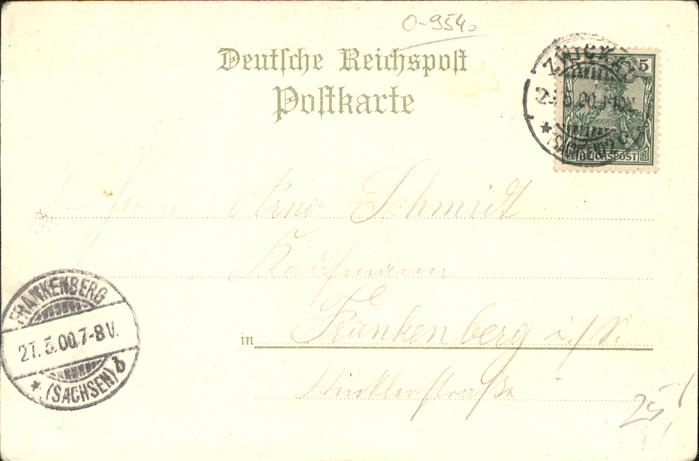 0-954
Deutsche Reichspost
Postkarte
ZWICKAU
5
REICHSPOST
Herrn Arno Schmidt
Kaufmann
in Frankenberg i/S.
FRANKENBERG
27.5.00.7-8V.
* (SACHSEN) b
25